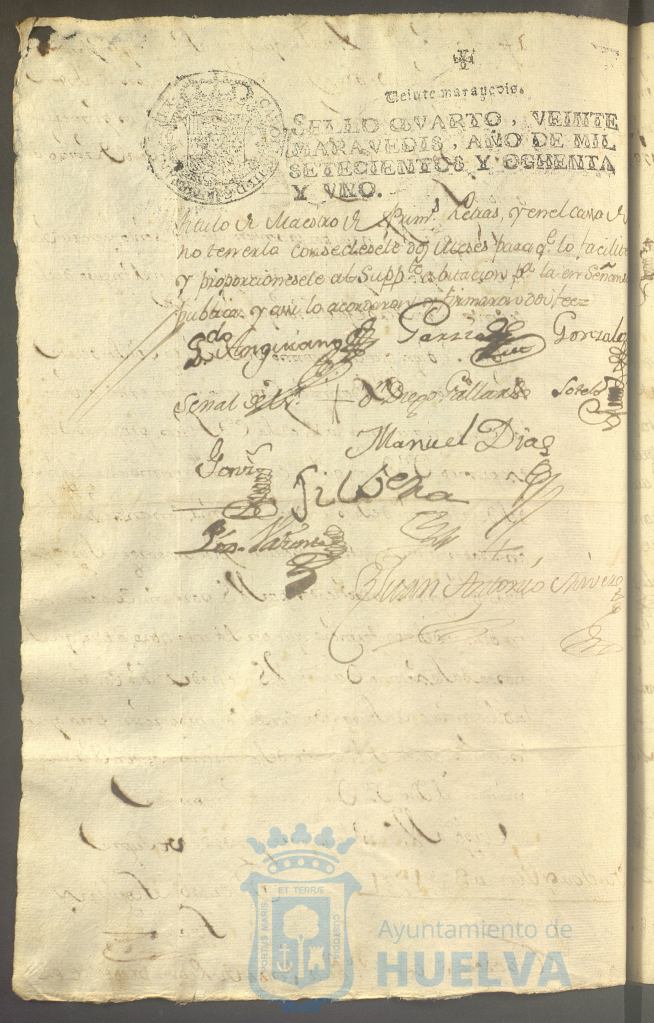 Veinte maravedis.
SELLO QVARTO, VEINTE
MARAVEDIS, AÑO DE MIL
SETECIENTOS Y OCHENTA
Y VNO.
titulo de Maestro de Prim.s Letras, y en el caso de
no tenerla concedesele dos Meses para q.e lo facilite
y proporcionesele al Supp.te abitacion p.a la enseñansa
publica. y asi lo acordaron y firmaron doy fee
L.do Anguiano
Garzia
Gonzalo
Señal de
D.n Diego Gallardo
Sotelo
Manuel Dias
Silbera
Juan Antonio
PORTUS MARIS ET TERRIS CUSTODIA
Ayuntamiento de
HUELVA